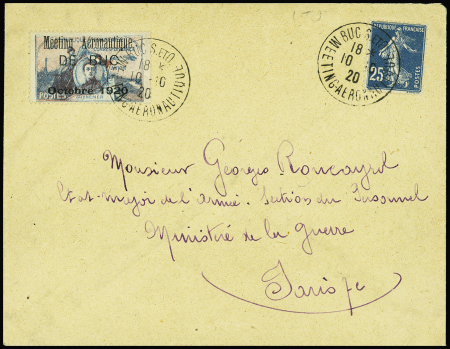 Meeting Aéronautique
DE BUC
Octobre 1920
POSTES
BUC S.ET.O.
18
10 -10
20
MEETING AÉRONAUTIQUE
BUC S.ET
18
10
20
MEETING AÉRONAUTI
25
POSTES
Monsieur Georges Roncayol
Etat-major de l'Armée. Section du Personnel
Ministère de la Guerre
Paris